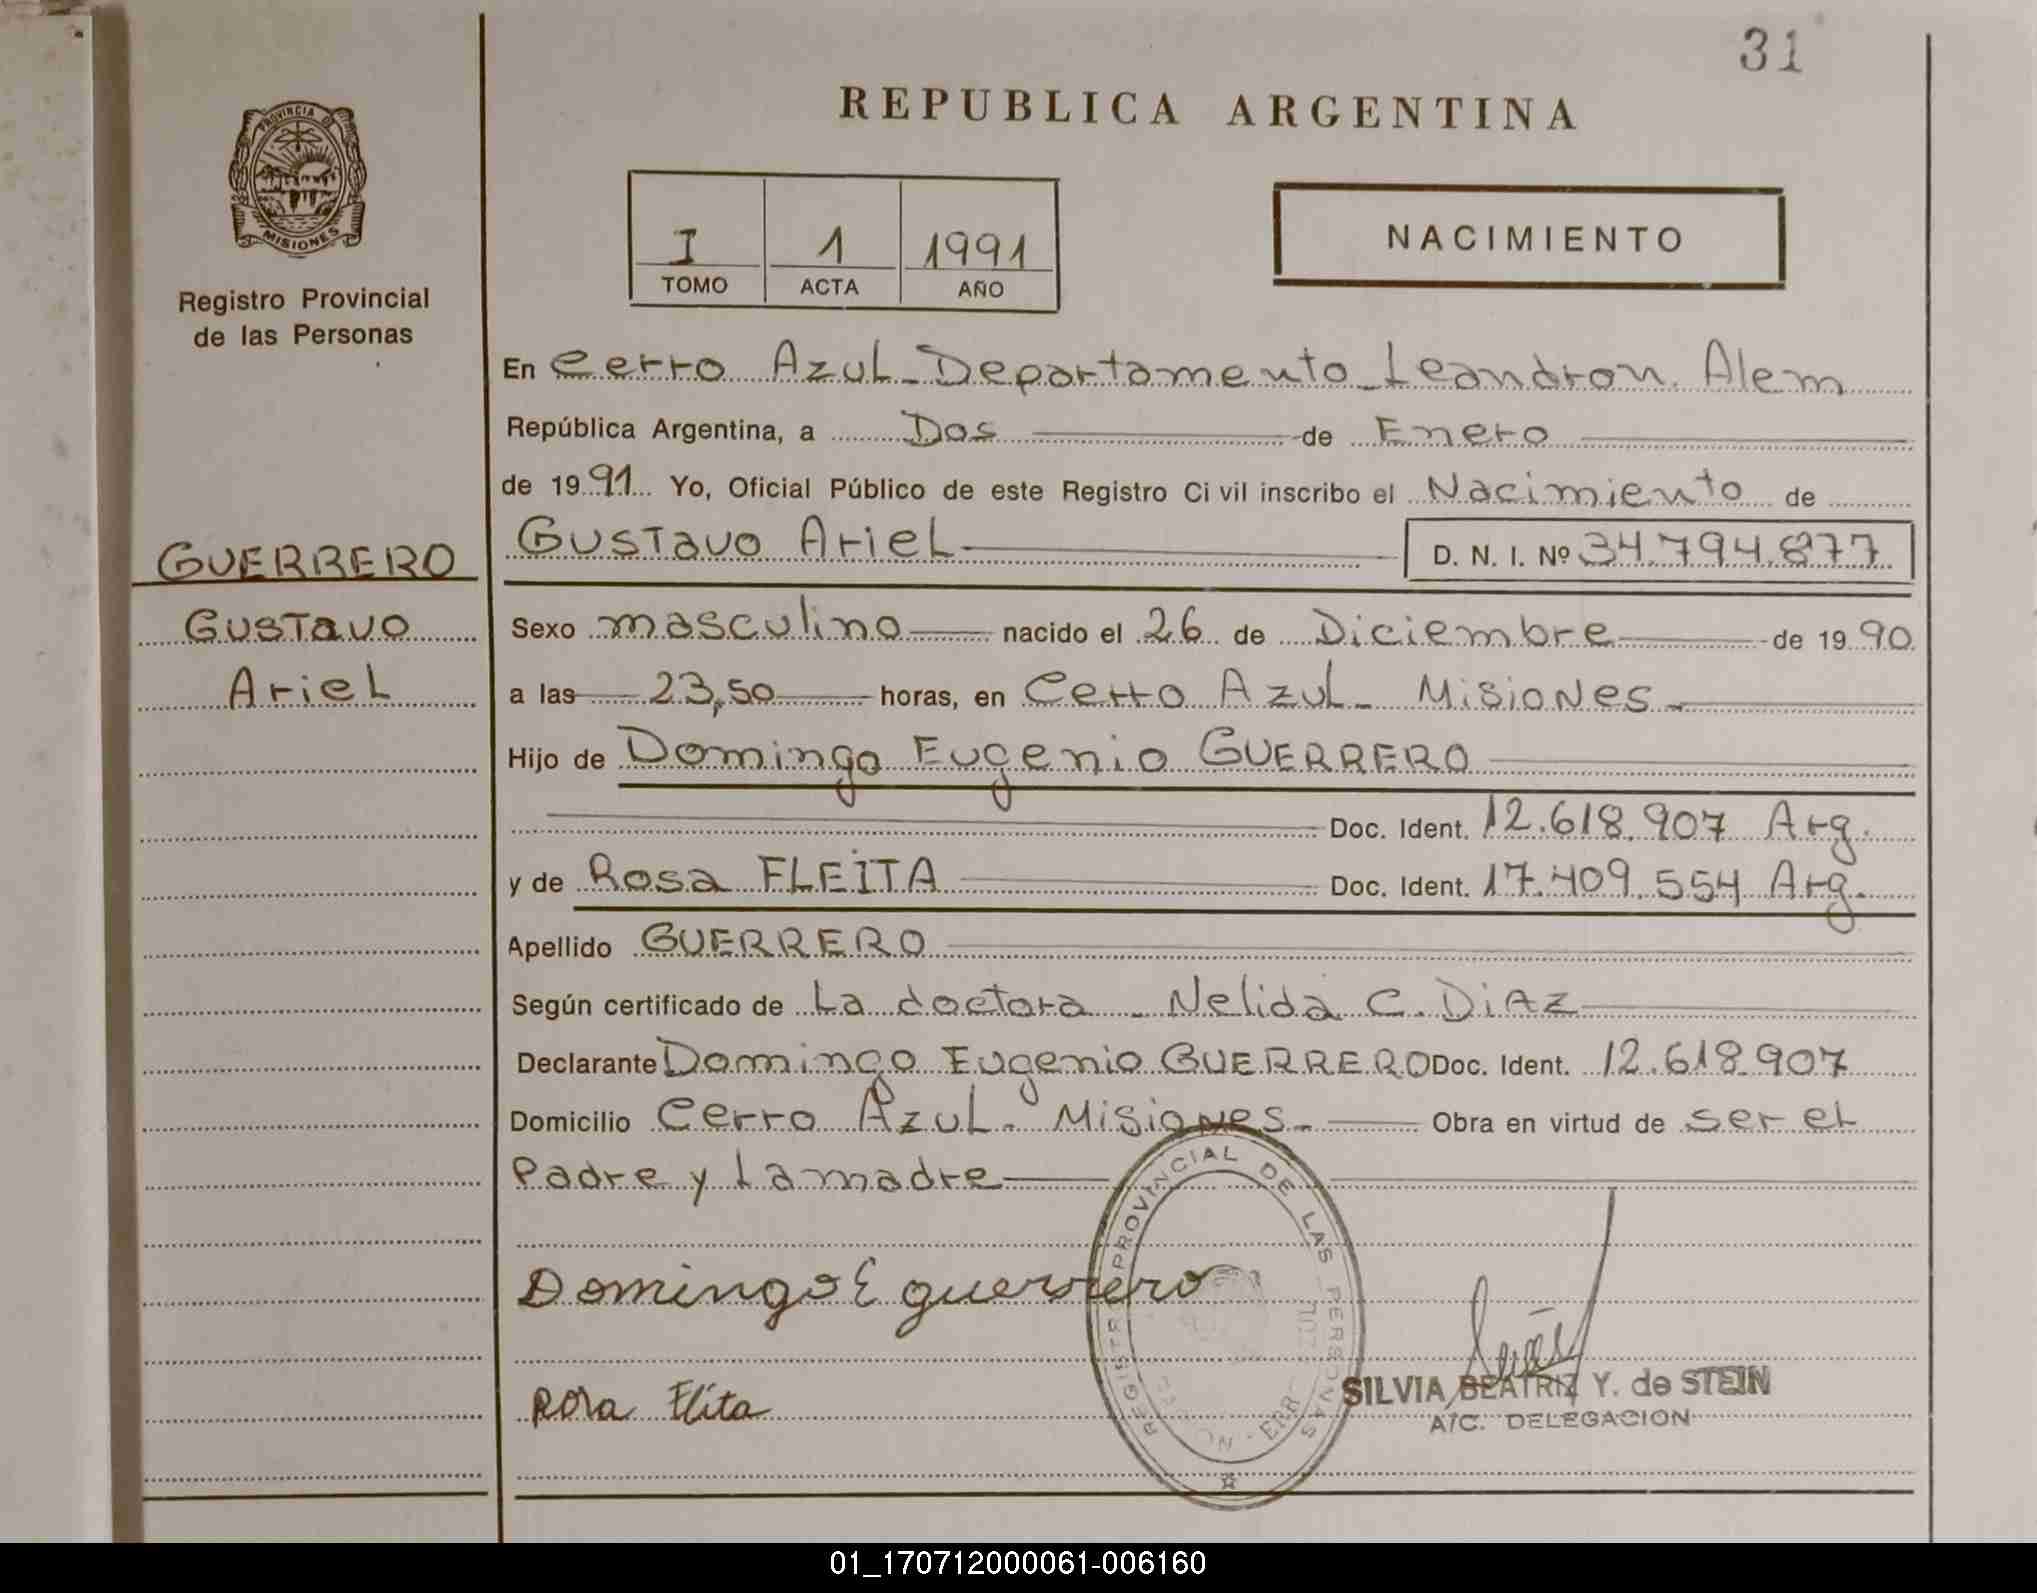 31
REPUBLICA ARGENTINA
PROVINCIA D
MISIONES
Registro Provincial
de las Personas
I 1 1991
TOMO ACTA AÑO
NACIMIENTO
En Cerro Azul - Departamento - Leandro N. Alem
República Argentina, a Dos de Enero
de 1991 Yo, Oficial Público de este Registro Civil inscribo el Nacimiento de
GUERRERO
Gustavo Ariel D. N. I. Nº 34.794.877
Gustavo
Ariel
Sexo masculino nacido el 26 de Diciembre de 1990
a las 23,50 horas, en Cerro Azul - Misiones -
Hijo de Domingo Eugenio GUERRERO
Doc. Ident. 12.618.907 Arg.
y de Rosa FLEITA Doc. Ident. 17.409.554 Arg.
Apellido GUERRERO
Según certificado de La doctora - Nelida C. Diaz
Declarante Domingo Eugenio GUERRERO Doc. Ident. 12.618.907
Domicilio Cerro Azul - Misiones - Obra en virtud de ser el
Padre y La madre
REGISTRO PROVINCIAL DE LAS PERSONAS
Domingo E guerrero
Rosa Flita
SILVIA BEATRIZ Y. de STEIN
A/C. DELEGACION
01_170712000061-006160